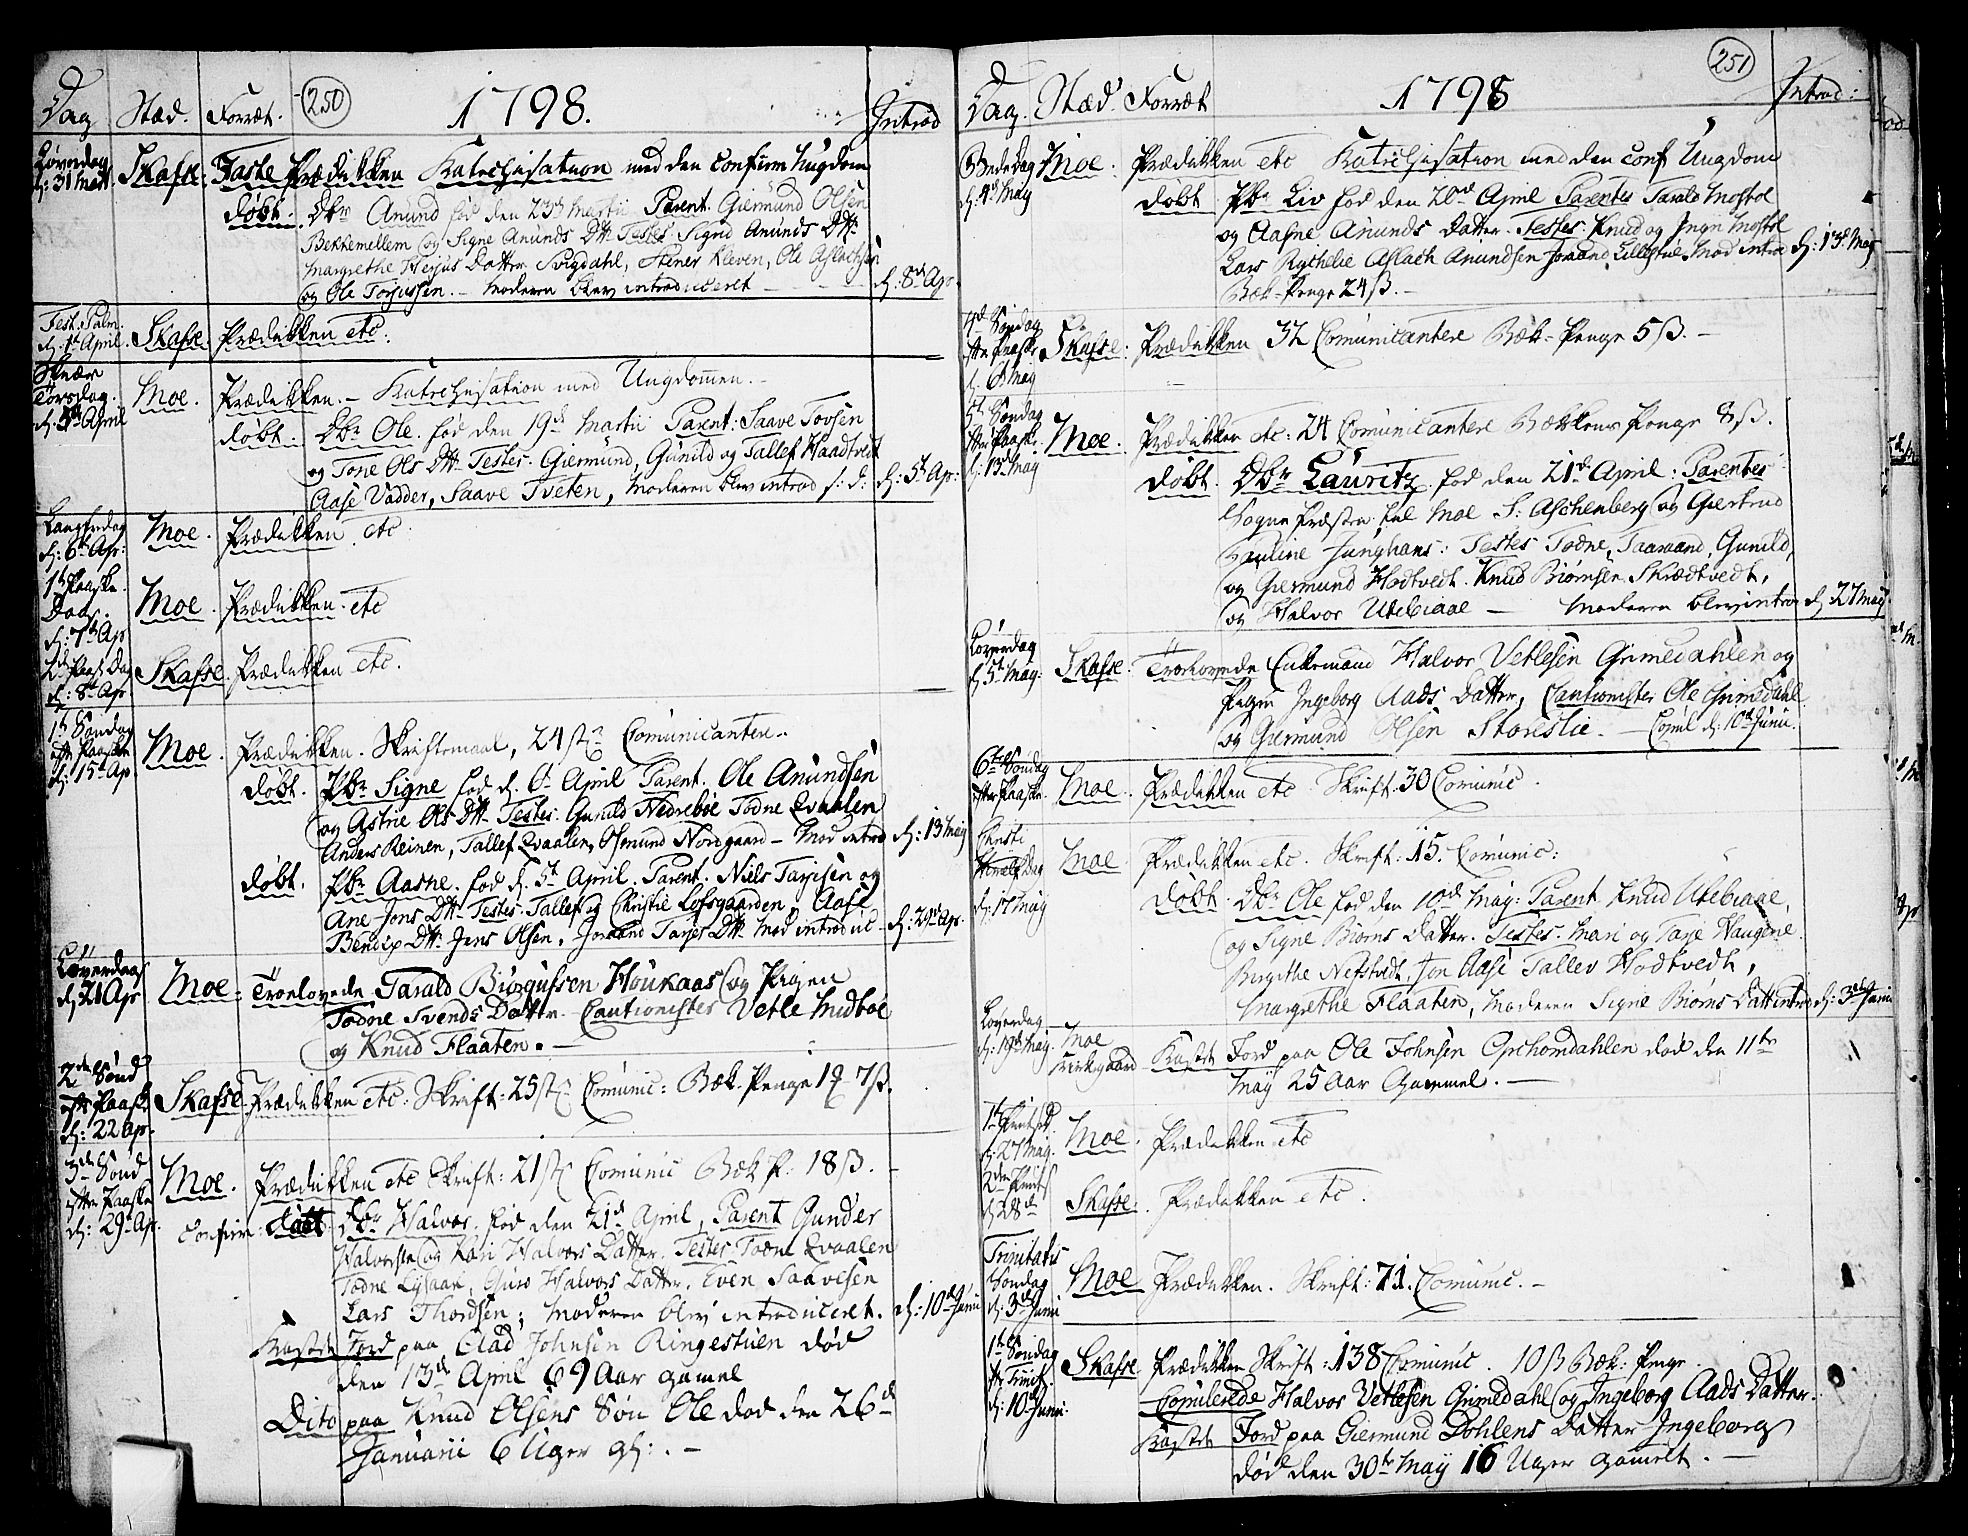 Dag Stæd. Forræt. 250 1798. Introd
Løverdag Skafse: Faste Prædikken Katechisation med den confirm Ungdom
d: 31 Mart.
døbt. Dbr Anund fød den 23d Martii Parent. Giermund Olsen
Bekkemellem og Signe Anunds Dttr Testes Sigrid Anunds Dttr
Margrethe Herjus Datter Svigdahl, Stener Kleven, Ole Aslachsen
og Ole Torjussen. – Moderen blev introduceret – d: 8d Apr.
Fest. Palm. Skafse. Prædikken etc:
d. 1st April.
Skær Torsdag. Moe. Prædikken. – Katechisation med Ungdommen. –
d: 5th April
døbt: Dbr Ole. fød den 19d Martii Parent: Saave Tovsen
og Tone Ols Dttr Testes. Giermund, Gunild og Tallef Haadtvedt
Aase Vadder, Saave Tveten, Moderen blev introd s: d: d: 5t Ap:
Langfredag Moe. Prædikken etc:
d: 6th Ap:
1th Paaske Dag. Moe. Prædikken. etc
d: 7th Ap
2d Paask Dag Skafse. Prædikken etc.
d: 8t Ap
1th Søndag eftr Paaske Moe. Prædikken. Skriftemaal, 24 st Comunicanter.
d: 15t Ap
døbt. Pbr Signe fød d. 6t April Parent. Ole Anundsen
og Astrie Ols Dttr Testes. Gunild Nedreboe Todne Qvaalen
Anders Reinen, Tallef Qvaalen, Osmund Nordgaard – Mod introd d: 13 Maij
døbt. Pbr Aasne. fød d. 5t April. Parent. Niels Tarjesen og
Ane Jons Dttr Testes. Tallef og Christie Lofsgaarden, Aase
Bendix Dttr Jens Olsen. Joraand Tarjes Dttr Mod introduc – d: 29d Ap.
Løverdag Moe: Troelovede Tarald Biørgufsen Houkaas og Pigen
d: 21 Ap
Todne Svends Datter. Cautionister Vetle Midboe
og Knud Flaaten. –
2den Sønd eftr Paaske Skafse. Prædikken etc: Skrift: 25 st Comunic: Bæk. Penge 1 7ß.
d: 22 Ap.
3de Sønd eftr Paaske Moe. Prædikken etc Skrift: 21 st Comunic Bæk P: 18ß. –
d: 29. Ap.
Confirm. døbt Dbr Halvor. fød den 21d April, Parent Gunder
Halvorsen og Kari Halvors Datter. Testes Todne Qvaalen
Todne Lysaar, Guro Halvors Datter. Even Saavesen
Lars Thordsen; Moderen blev introduceret. d: 10d Junii
Kastet Jord paa Olad Johnsen Ringestuen død
den 13d April 69 Aar gamel
Dito paa Knud Olsens Søn Ole død den 26d
Januarii 6 Uger gl: . –
Dag. Stæd. Forræt 1798 251 Introd:
Bededag Moe. Prædikken etc Katechisation med den conf Ungdom
d: 4d May
døbt Pbr Liv fød den 20d April Parentes Tarald Mostøl
og Aasne Anunds Datter. Testes. Knud og Ingr Mostøl
Lars Rysthelie Aslach Anundsen Joraand Lillestue. Mod introd d: 13d May
Bæk-Penge 24ß. –
4d Søndag eftr Paaske Skafse: Prædikken 32 Comunicantere Bæk-Penge 5ß. –
d. 6 May
5t Søndag eftr Paaske Moe. Prædikken etc: 24 Comunicantere Bækkens Penge 8ß.
d: 13d May
døbt. Dbr Lauritz fød den 21d April: Parentes
Sogne Præsten til Moe S: Aschenberg og Giertrud
Pauline Junghans: Testes Todne, Taaraand, Gunild,
og Giermund Hodtvedt. Knud Biørnsen Skrædtvedt,
og Halvor Utebiaae – Moderen blev introd d 27 Maij
Løverdag Skafse: Troelovede Enkemand Halvor Vetlesen Grimedahlen og
d 5t May.
Pigen Ingeborg Aads Datter, Cautionister Ole Grimedahl
og Giermund Olsen Storeslie. – Copul d: 10d Junii.
6te Søndag eftter Paaske. Moe. Prædikken etc Skrift. 30 Comunic.
Christi Himelf Dag Moe. Prædikken etc. Skrift: 15. Comunic:
d: 17 May
døbt. Dbr Ole fød den 10d May: Parent Knud Utebiaae,
og Signe Biørns Datter. Testes. Mari og Tarje Haugene
Birgithe Nefstvedt, Jon Aase Tallev Hodtvedt,
Margrethe Flaaten, Moderen Signe Biørns Datt introd d: 3de Junii
Løverdag Moe Kirkegaard Kastet Jord paa Ole Johnsen Gschomdahlen død den 11te
d: 19d May.
May 25 Aar Gammel. –
1th Pintsed. Moe. Prædikken etc
d. 27 May.
2den Pintse Skafse. Prædikken etc.
d 28d
Trinitatis Søndag Moe Prædikken. Skrift: 71. Comunic. –
d: 3d Junii
1th Søndag eftr Trinit. Skafse Prædikken Skrift: 138 Comunic. 10ß Bæk: Penge.
d: 10d Junii.
Copulerede Halvor Vetlesen Grimedahl og Ingeborg Aads Datter.
Kastet Jord paa Giermund Dohlens Datter Ingeborg
død den 30te May 16 Uger gamelt. –